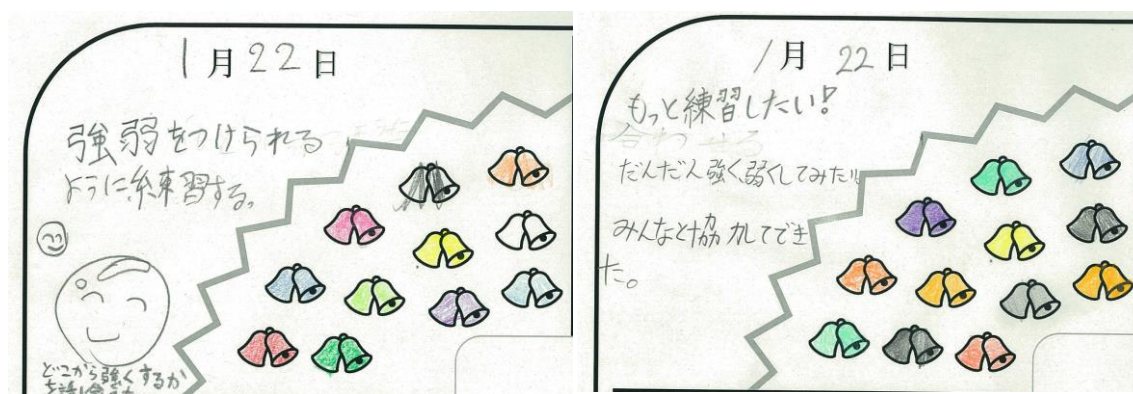 1月22日
強弱をつけられる
ように練習する。
どこから強くするか
1月22日
もっと練習したい!
合わせる
だんだん強く、弱くしてみたい。
みんなと協力してでき
た。